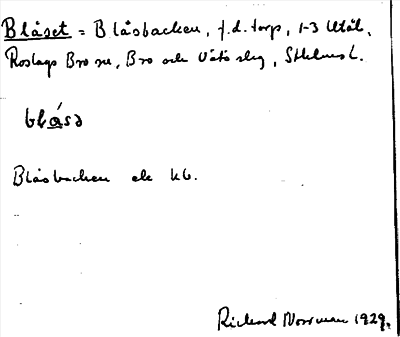 Blåset = Blåsbacken, f.d. torp, 1-3 Utål,
Roslags Bro sn, Bro och Vätö slg, Sthlms l.
blåsə
Blåsbacken ek kb.
Rickard Norrman 1929.